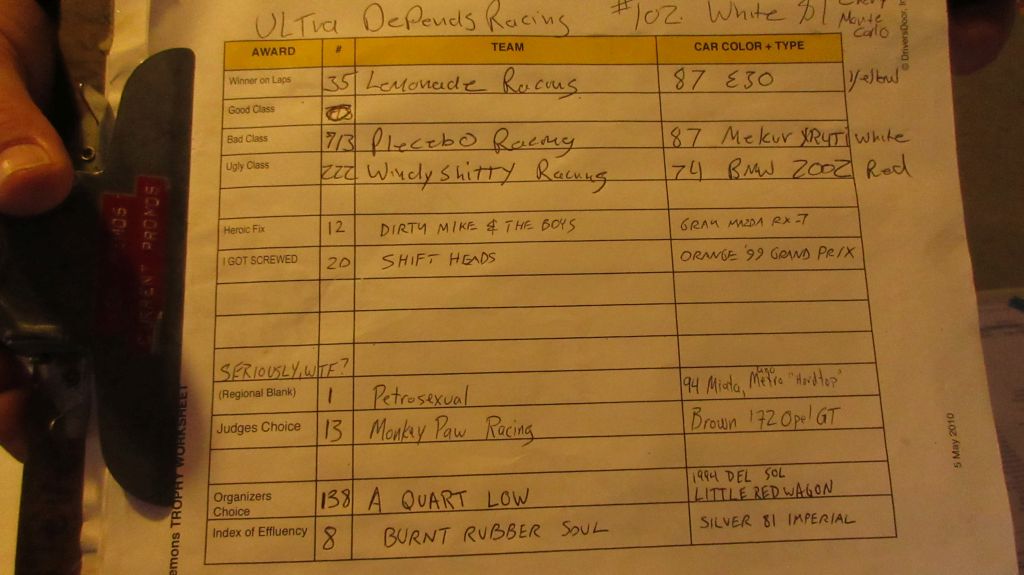 ULTra Depends Racing #102 White 81 Chevy
Monte
Carlo
AWARD # TEAM CAR COLOR + TYPE
© DriversDoor, In
Winner on Laps 35 Lemonade Racing 87 E30 Yellow
Good Class
Bad Class 713 Plecebo Racing 87 Mekur XR4Ti White
Ugly Class 222 Windy Shitty Racing 74 BMW 2002 Red
Heroic Fix 12 DIRTY MIKE & THE BOYS GRAY MAZDA RX-7
I GOT SCREWED 20 SHIFT HEADS ORANGE '99 GRAND PRIX
SERIOUSLY, WTF?
(Regional Blank) 1 Petrosexual 94 Miata, Metro "Hardtop"
Judges Choice 13 Monkey Paw Racing Brown '72 Opel GT
Organizers
Choice 138 A QUART LOW 1994 DEL SOL
LITTLE RED WAGON
Index of Effluency 8 BURNT RUBBER SOUL SILVER 81 IMPERIAL
5 May 2010
emons TROPHY WORKSHEET